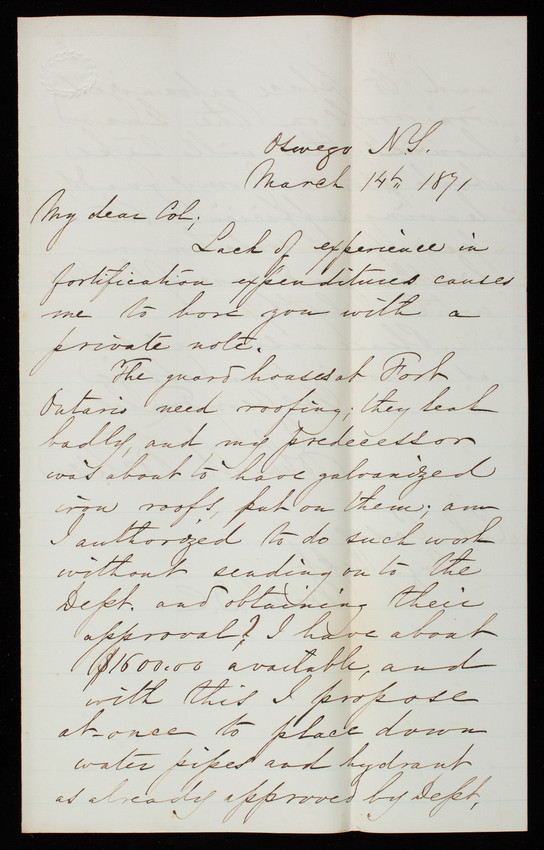 Oswego N.Y.
March 14th, 1871
My dear Col;
Lack of experience in
fortification expenditures causes
me to bore you with a
private note.
The guard houses at Fort
Ontario need roofing; they leak
badly, and my predecessor
was about to have galvanized
iron roofs, put on them; am
I authorized to do such work
without sending on to the
Dept. and obtaining their
approval? I have about
$1500.00 available, and
with this I propose
at-once to place down
water pipes and hydrant
as already approved by Dept,